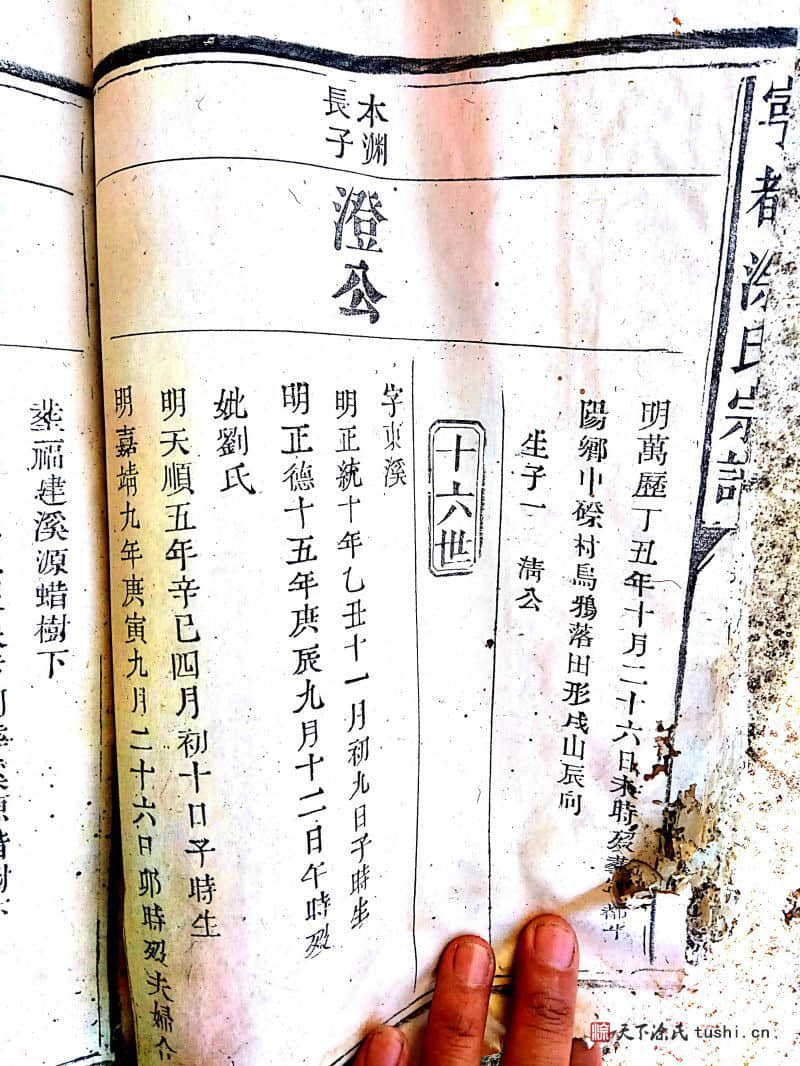 寧都涂氏宗譜
明萬歷丁丑年十月二十六日未時歿葬
陽鄉中磜村烏鴉落田形戌山辰向
生子一 清公
十六世
本淵
長子
澄公
字東溪
明正統十年乙丑十一月初九日子時生
明正德十五年庚辰九月十二日午時歿
妣劉氏
明天順五年辛巳四月初十日子時生
明嘉靖九年庚寅九月二十六日卯時歿夫婦合
葬福建溪源蜡樹下
天下涂氏 tushi.cn